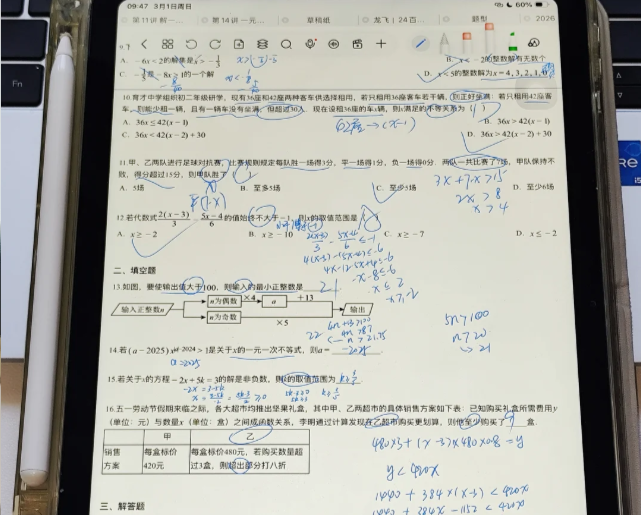 09:47 3月1日周日
60%
第11讲 解一…
第14讲 一元…
草稿纸
龙飞｜24百…
题型
2026
A. -6x<2的解集是x>-1/3
B. x<-2的整数解有无数个
C. 是-8x≥1的一个解
D. x<5的整数解为x=4,3,2,1
10.育才中学组织初二年级研学，现有36座和42座两种客车供选择租用，若只租用36座客车若干辆，则正好坐满；若只租用42座客
车，则能少租一辆，且有一辆车没有坐满，但超过30人．现在设租36座的车x辆，则x满足的不等关系为（ ）
A. 36x≤42(x-1)
B. 36x>42(x-1)
C. 36x<42(x-2)+30
D. 36x>42(x-2)+30
42座→(x-1)
11.甲、乙两队进行足球对抗赛，比赛规则规定每队胜一场得3分，平一场得1分，负一场得0分．两队一共比赛了7场，甲队保持不
败，得分超过15分，则甲队胜了（ ）
A. 5场
B. 至多5场
C. 至少5场
D. 至少6场
3x+7-x>15
2x>8
x>4
平(7-x)
12.若代数式2(x-3)/3-(5x-4)/6的值始终不大于-1，则x的取值范围是（ ）
A. x≥-2
B. x≥-10
C. x≥-7
D. x≤-2
4(x-3)-(5x-4)≤-6
4x-12-5x+4≤-6
-x-8≤-6
-x≤2
x≥-2
二、填空题
13.如图，要使输出值大于100，则输入的最小正整数是
21
输入正整数n
n为偶数
×4
a
+13
n为奇数
×5
输出
4n+13>100
4n>87
n>21.75
22
5n>100
n>20
→21
14.若(a-2025)x^|a|-2024>1是关于x的一元一次不等式，则a=
-2025
a=2025
15.若关于x的方程-2x+5k=3的解是非负数，则k的取值范围为
16.五一劳动节假期来临之际，各大超市均推出坚果礼盒，其中甲、乙两超市的具体销售方案如下表：已知购买礼盒所需费用y
（单位：元）与数量x（单位：盒）之间成函数关系，李明通过计算发现在乙超市购买更划算，则他至少购买了 盒．
甲
乙
销售方案
每盒标价420元
每盒标价480元，若购买数量超过3盒，则超出部分打八折
480×3+(x-3)×480×0.8=y
y<420x
1440+384×(x-3)<420x
1440+384x-1152<420x
三、解答题